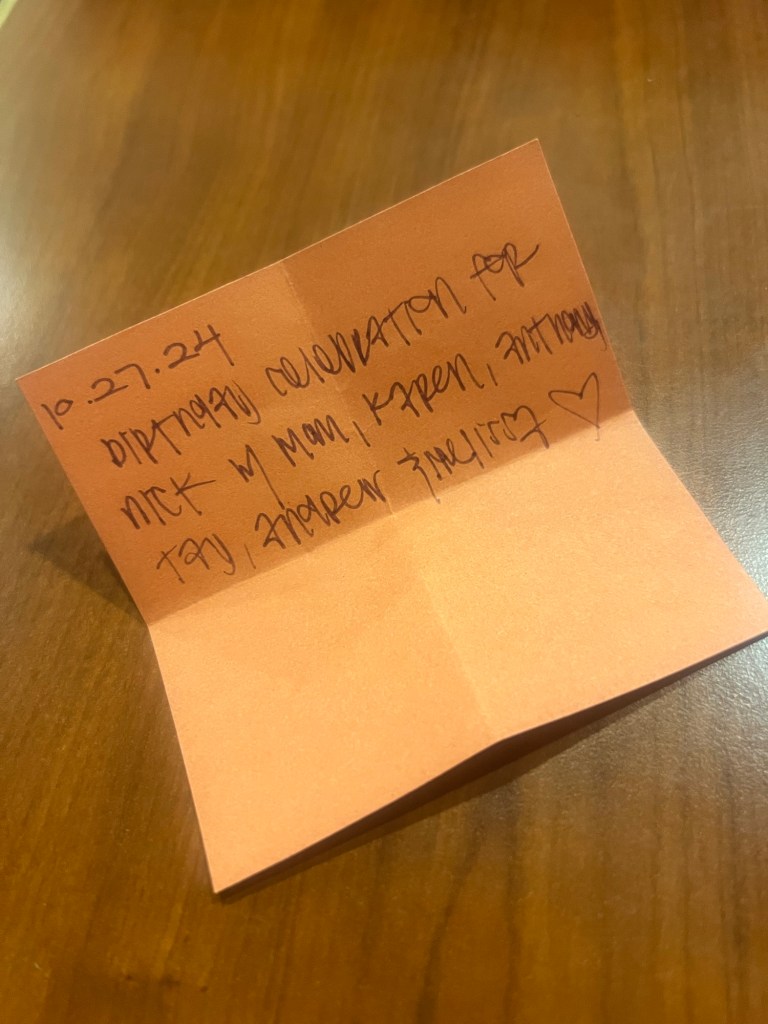 10.27.24
birthday celebration for
nick w mom, karen, anthony
tay, andrew ♡